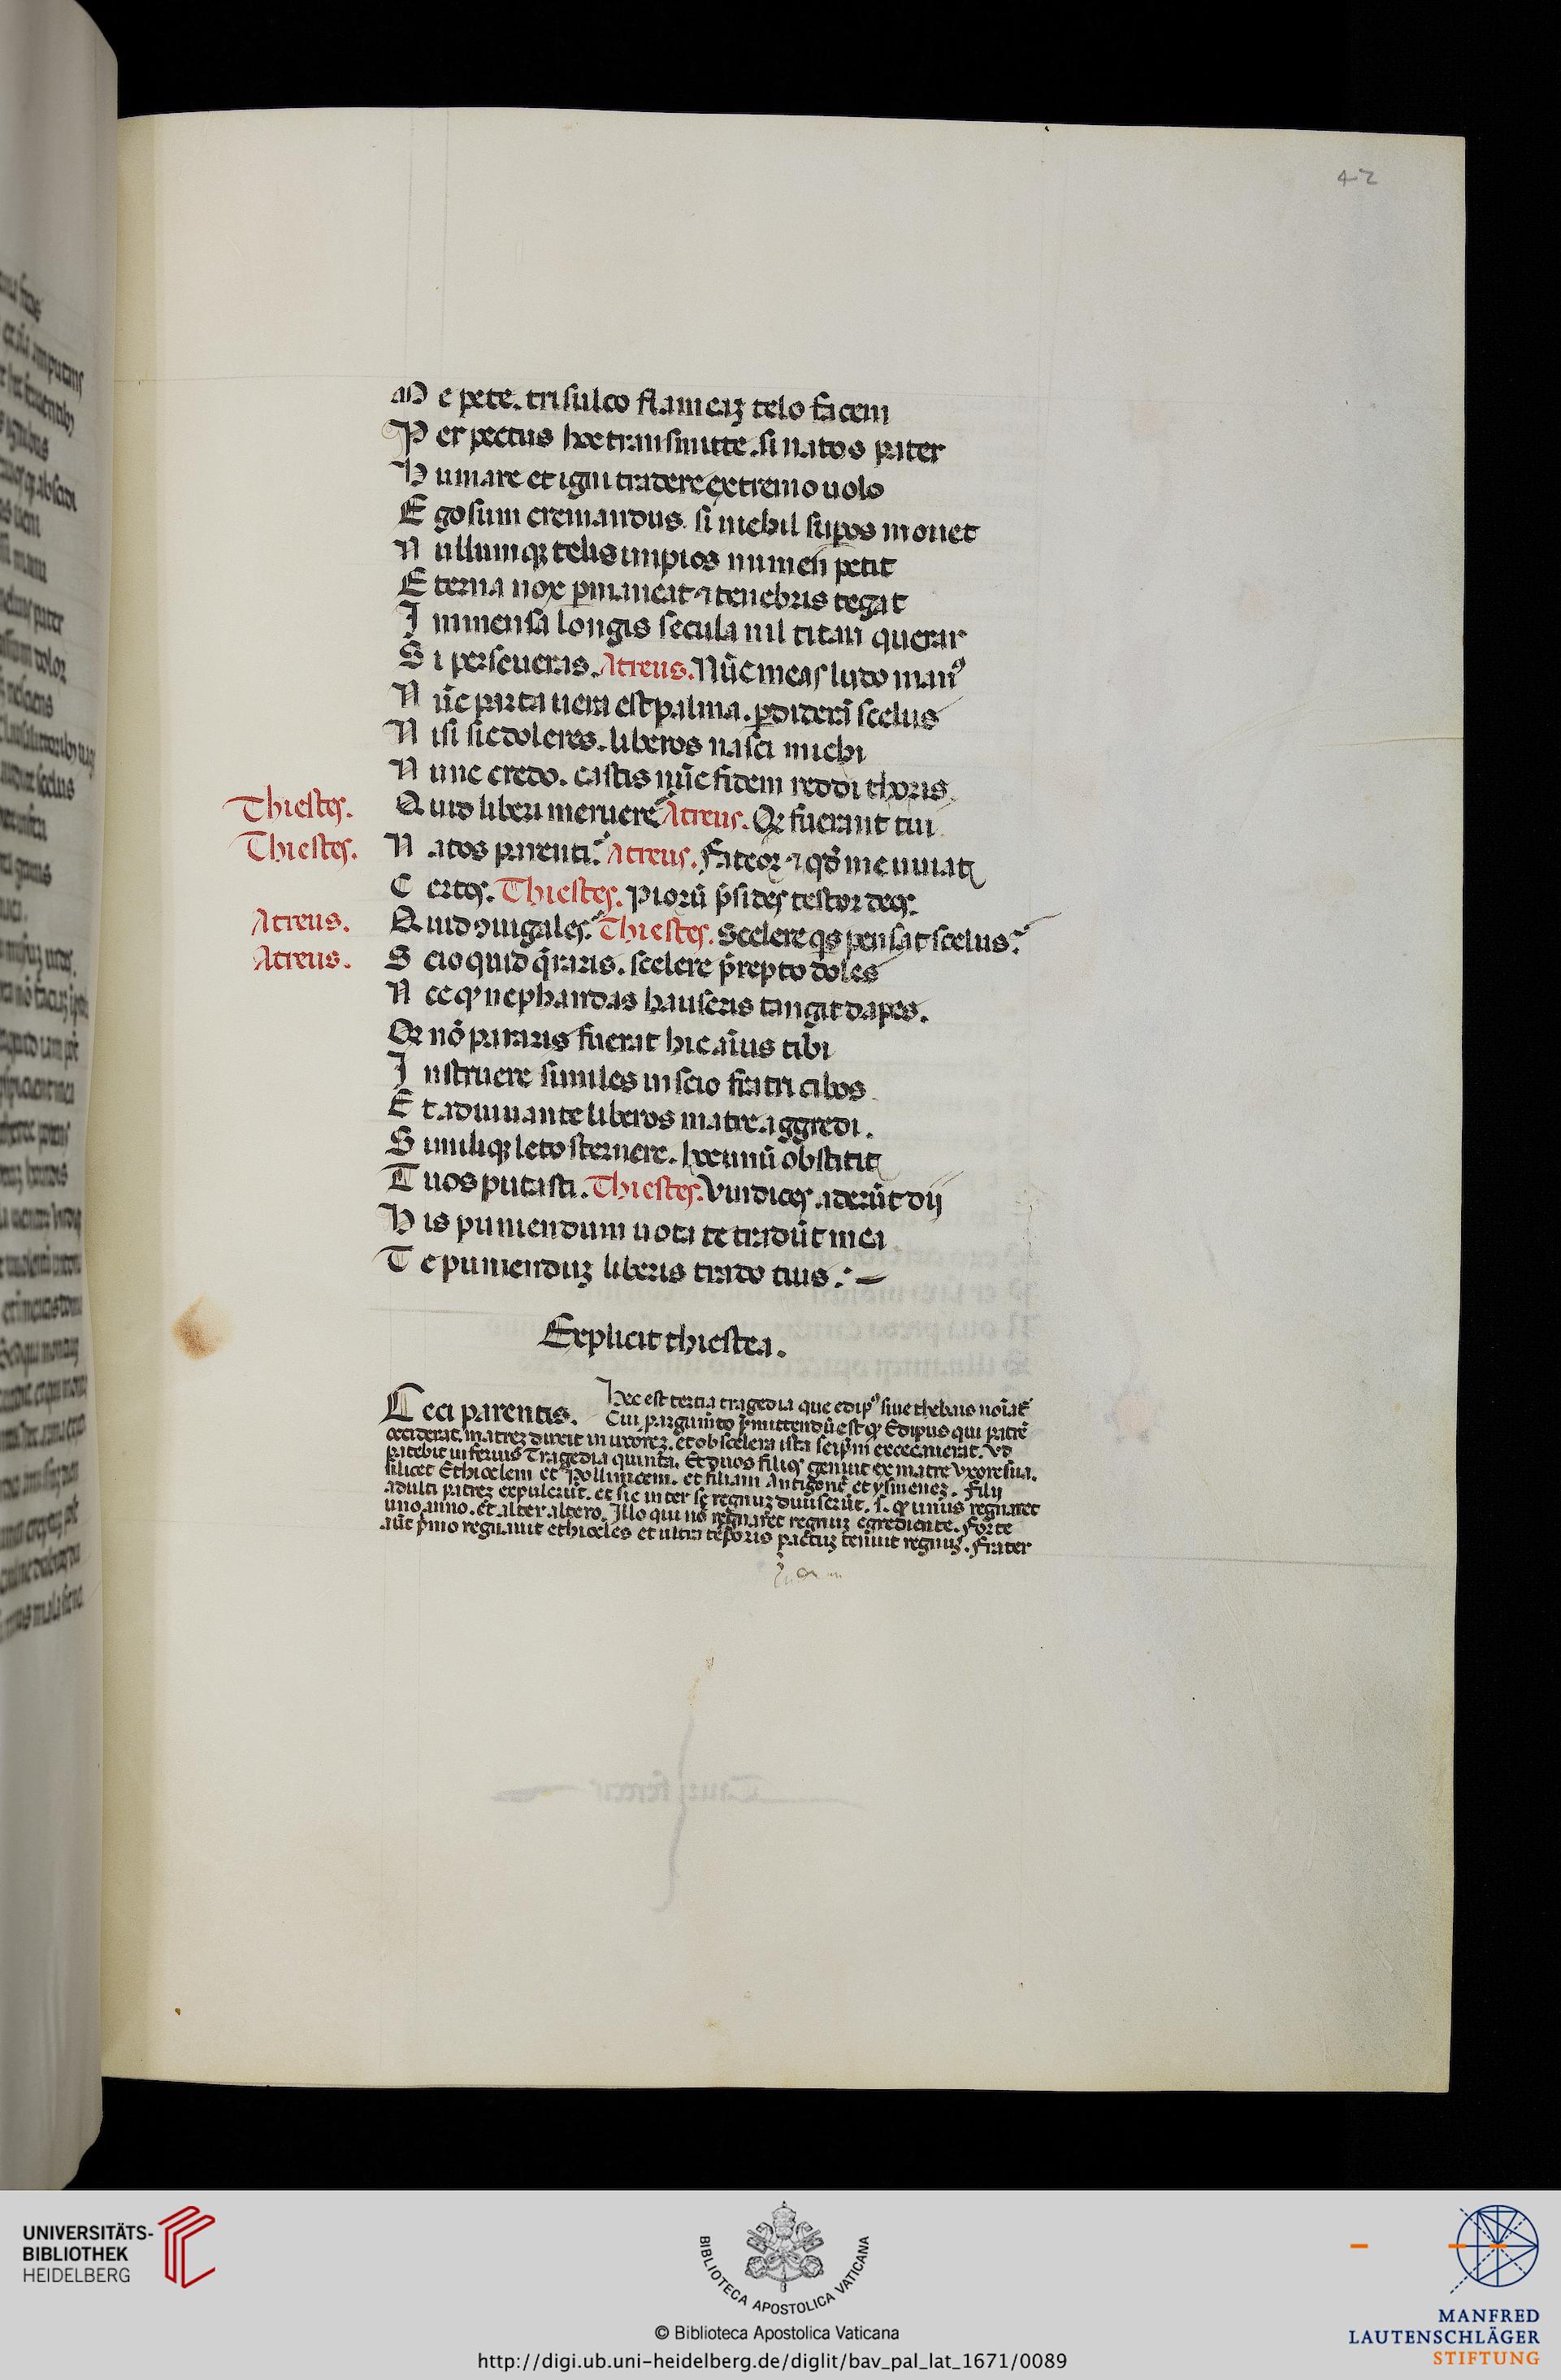 42
M e pete. trisulco flameaꝫ telo facem
P er pectus hoc transmitte. si natos pater
H umare et igni tradere extremo uolo
E go sum cremandus. si nichil suꝑos mouet
N ullumqꝫ telis impios numen petit
E terna nox ꝑmaneat ⁊ tenebris tegat
I mmensa longis secula nil titan querar
S i perseueras. Atreus. Nūc meas laudo manꝰ
N ūc parta uera est palma. ꝑdiderā scelus
N isi sic doleres. liberos nasci michi
N unc credo. castis nūc fidem reddi thoris.
Thiestes. Q uid liberi meruere? Atreus. Qꝫ fuerant tui
Thiestes. N atos parenti? Atreus. Fateor ⁊ qď me iuuat
C ertos. Thiestes. Piorū p̄sides testor deos.
Atreus. Q uid ꝯiugales? Thiestes. Scelere qͥs pensat scelus?
Atreus. S cio quid q̄raris. scelere p̄repto doles
N ec qꝫ nephandas hauseris tangit dapes.
Qꝫ nō pararis fuerat hic aīus tibi
I nstruere similes inscio fratri cibos
E t adiuuante liberos matre aggredi.
S imiliqꝫ leto sternere. hoc unū obstitit
T uos putasti. Thiestes. Vindices aderūt dij
H is puniendum uota te tradūt mea
T e punienduꝫ liberis trado tuis.
Explicit thiestea.
Hec est tercia tragedia que edipꝰ siue thebais noīat̄
C eci parentis. Cui ꝓ argumto p̄mittendū est qꝫ Edipus qui patrē
occiderat. matreꝫ duxit in uxoreꝫ. et ob scelera ista seip̄m excecauerat. vd
patebit inferius Tragedia quinta. Et duos filios genuit ex matre vxore sua.
silicet Ethioclem et Pollinicem. et filiam Antigonē et ysmeneꝫ. Filij
adulti patreꝫ expulerūt. et sic inter se regnuꝫ diuiserūt. s. qꝫ unus regnaret
uno anno. et alter altero. Illo qui nō regnaret regnuꝫ egrediente. Forte
aūt p̄mo regnauit ethiocles et ultra tēporis pactuꝫ tenuit regnuꝫ. Frater
UNIVERSITÄTS-
BIBLIOTHEK
HEIDELBERG
BIBLIOTECA APOSTOLICA VATICANA
© Biblioteca Apostolica Vaticana
http://digi.ub.uni-heidelberg.de/diglit/bav_pal_lat_1671/0089
MANFRED
LAUTENSCHLÄGER
STIFTUNG